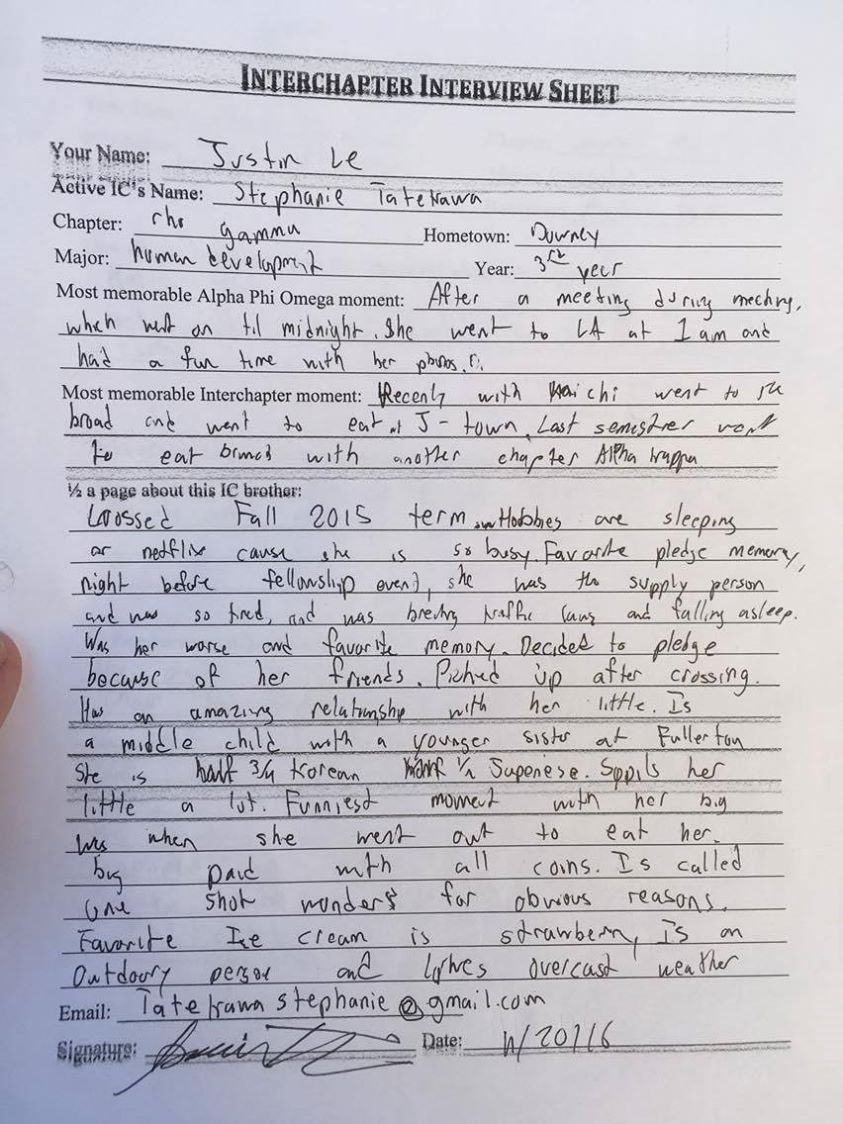 INTERCHAPTER INTERVIEW SHEET
Your Name: Justin Le
Active IC's Name: Stephanie Tatekawa
Chapter: rho gamma Hometown: Downey
Major: human development Year: 3rd year
Most memorable Alpha Phi Omega moment: After a meeting during
which went on til midnight. She went to LA at 1 am and
had a fun time with her
Most memorable Interchapter moment: Recenly with went to the
broad and went to eat at J-town. Last semester went
to eat with another chapter Alpha kappa
½ a page about this IC brother:
Crossed Fall 2015 term. Hobbies are sleeping
or netflix cause she is so busy. Favorite pledge memory,
night before fellowship event, she was the supply person
and was so tired, and was traffic laws and falling asleep.
Was her worse and favorite memory. Decided to pledge
because of her friends. Picked up after crossing.
Has an amazing relationship with her little. Is
a middle child with a younger sister at Fullerton
She is half 3/4 Korean 1/2 Japenese. Sppils her
little a lot. Funniest moment with her big
was when she went out to eat her.
big paid with all coins. Is called
one shot wonders for obvious reasons.
Favorite Ice cream is strawberry, Is an
Outdoory person and overcast weather
Email: Tatekawastephanie@gmail.com
Signature: Date: